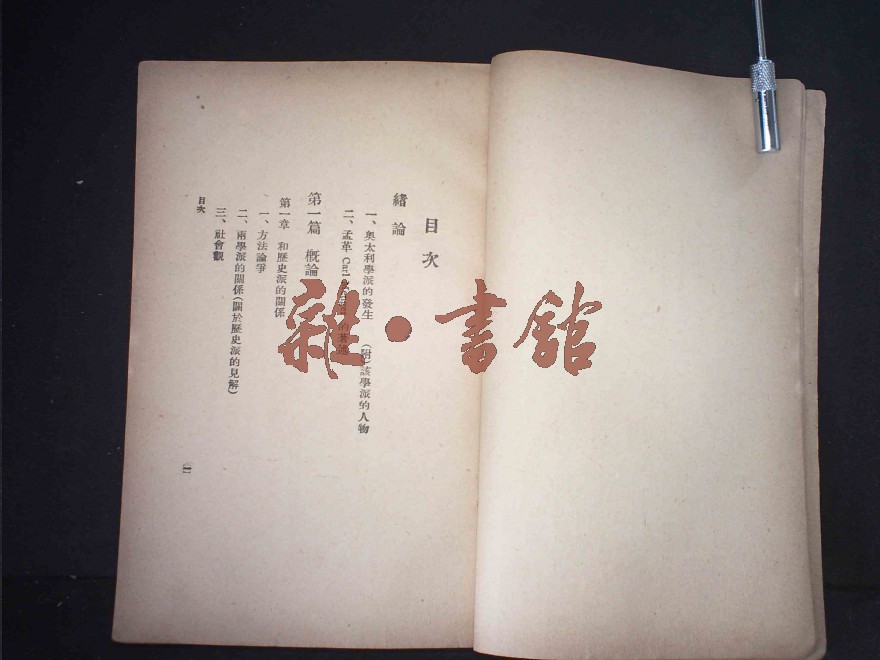 目次
緒論
一、奧太利學派的發生 (附)該學派的人物
二、孟革 Carl 的著述
第一篇 概論
第一章 和歷史派的關係
一、方法論爭
二、兩學派的關係(關於歷史派的見解)
三、社會觀
目次
雜·書館